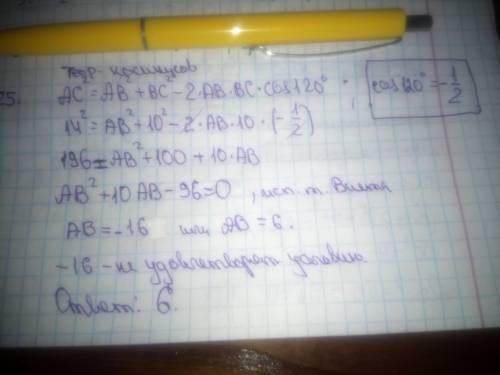 теор. косинусов
25. AC² = AB² + BC² - 2·AB·BC·cos120° ; cos120° = -1/2
14² = AB² + 10² - 2·AB·10·(-1/2)
196 = AB² + 100 + 10·AB
AB² + 10AB - 96 = 0, исп. т. Виета
AB = -16 или AB = 6.
-16 - не удовлетворяет условию.
Ответ: 6.